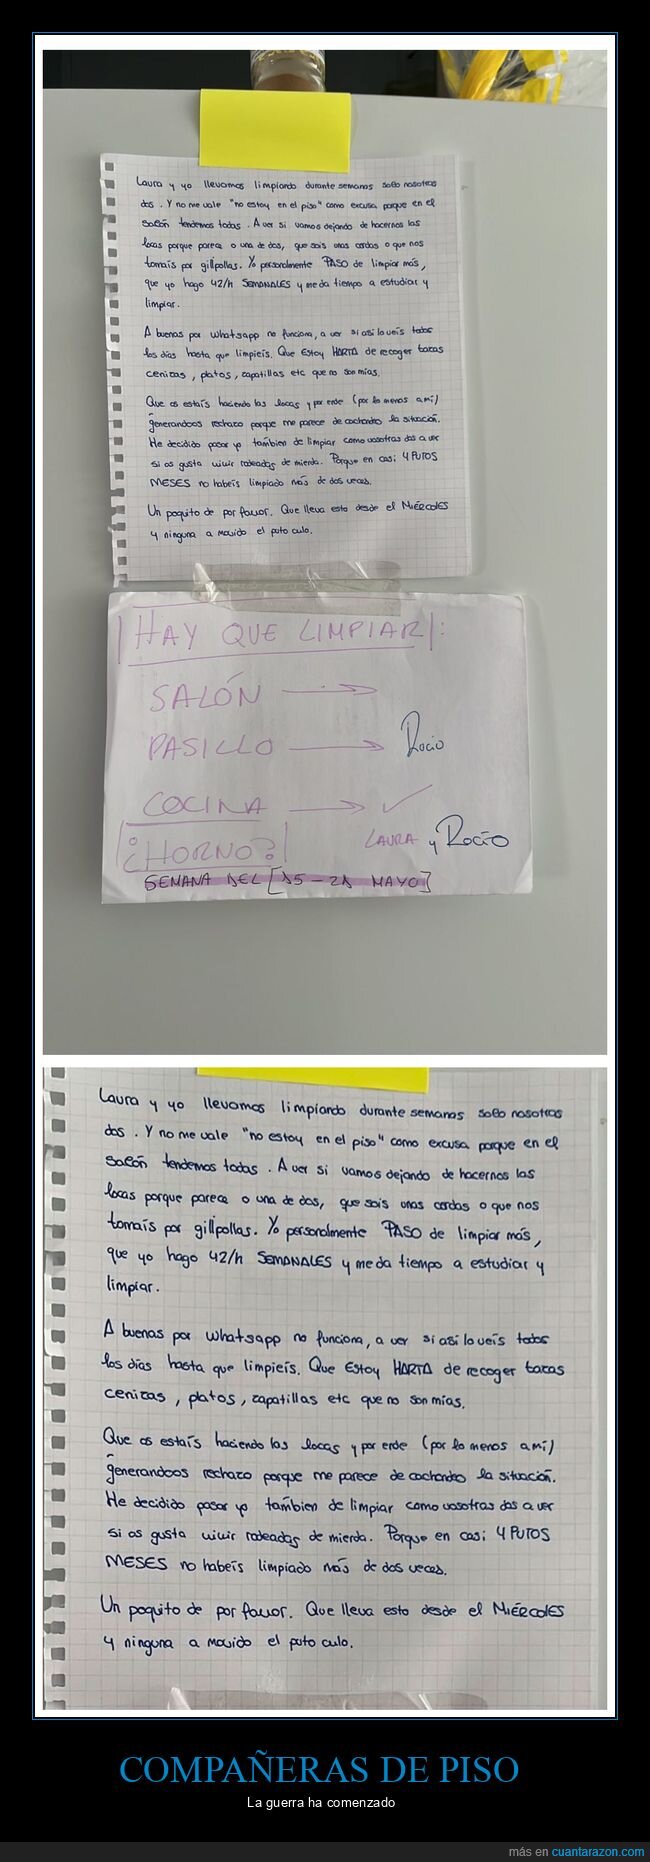 Laura y yo llevamos limpiando durante semanas solo nosotras
dos. Y no me vale "no estoy en el piso" como excusa porque en el
salón tendemos todas. A ver si vamos dejando de hacernos las
locas porque parece o una de dos, que sois unas cerdas o que nos
tomaís por gilipollas. Yo personalmente PASO de limpiar más,
que yo hago 42/h SEMANALES y me da tiempo a estudiar y
limpiar.
A buenas por whatsapp no funciona, a ver si asi lo veís todos
los días hasta que limpieís. Que Estoy HARTA de recoger tazas
cenizas, platos, zapatillas etc que no son mías.
Que os estaís haciendo las locas y por ende (por lo menos a mi)
generandoos rechazo porque me parece de cachondeo la situación.
He decidido pasar yo tambien de limpiar como vosotras dos a ver
si os gusta vivir rodeadas de mierda. Porque en casi 4 PUTOS
MESES no habeís limpiado más de dos veces.
Un poquito de por favor. Que lleva esto desde el MIÉRCOLES
y ninguna a movido el puto culo.
HAY QUE LIMPIAR:
SALÓN →
PASILLO → Rocio
COCINA → ✓
¿HORNO? LAURA y Rocío
SEMANA DEL [15-21 MAYO]
Laura y yo llevamos limpiando durante semanas solo nosotras
dos. Y no me vale "no estoy en el piso" como excusa porque en el
salón tendemos todas. A ver si vamos dejando de hacernos las
locas porque parece o una de dos, que sois unas cerdas o que nos
tomaís por gilipollas. Yo personalmente PASO de limpiar más,
que yo hago 42/h SEMANALES y me da tiempo a estudiar y
limpiar.
A buenas por whatsapp no funciona, a ver si asi lo veís todos
los días hasta que limpieís. Que Estoy HARTA de recoger tazas
cenizas, platos, zapatillas etc que no son mías.
Que os estaís haciendo las locas y por ende (por lo menos a mi)
generandoos rechazo porque me parece de cachondeo la situación.
He decidido pasar yo tambien de limpiar como vosotras dos a ver
si os gusta vivir rodeadas de mierda. Porque en casi 4 PUTOS
MESES no habeís limpiado más de dos veces.
Un poquito de por favor. Que lleva esto desde el MIÉRCOLES
y ninguna a movido el puto culo.
COMPAÑERAS DE PISO
La guerra ha comenzado
más en cuantarazon.com